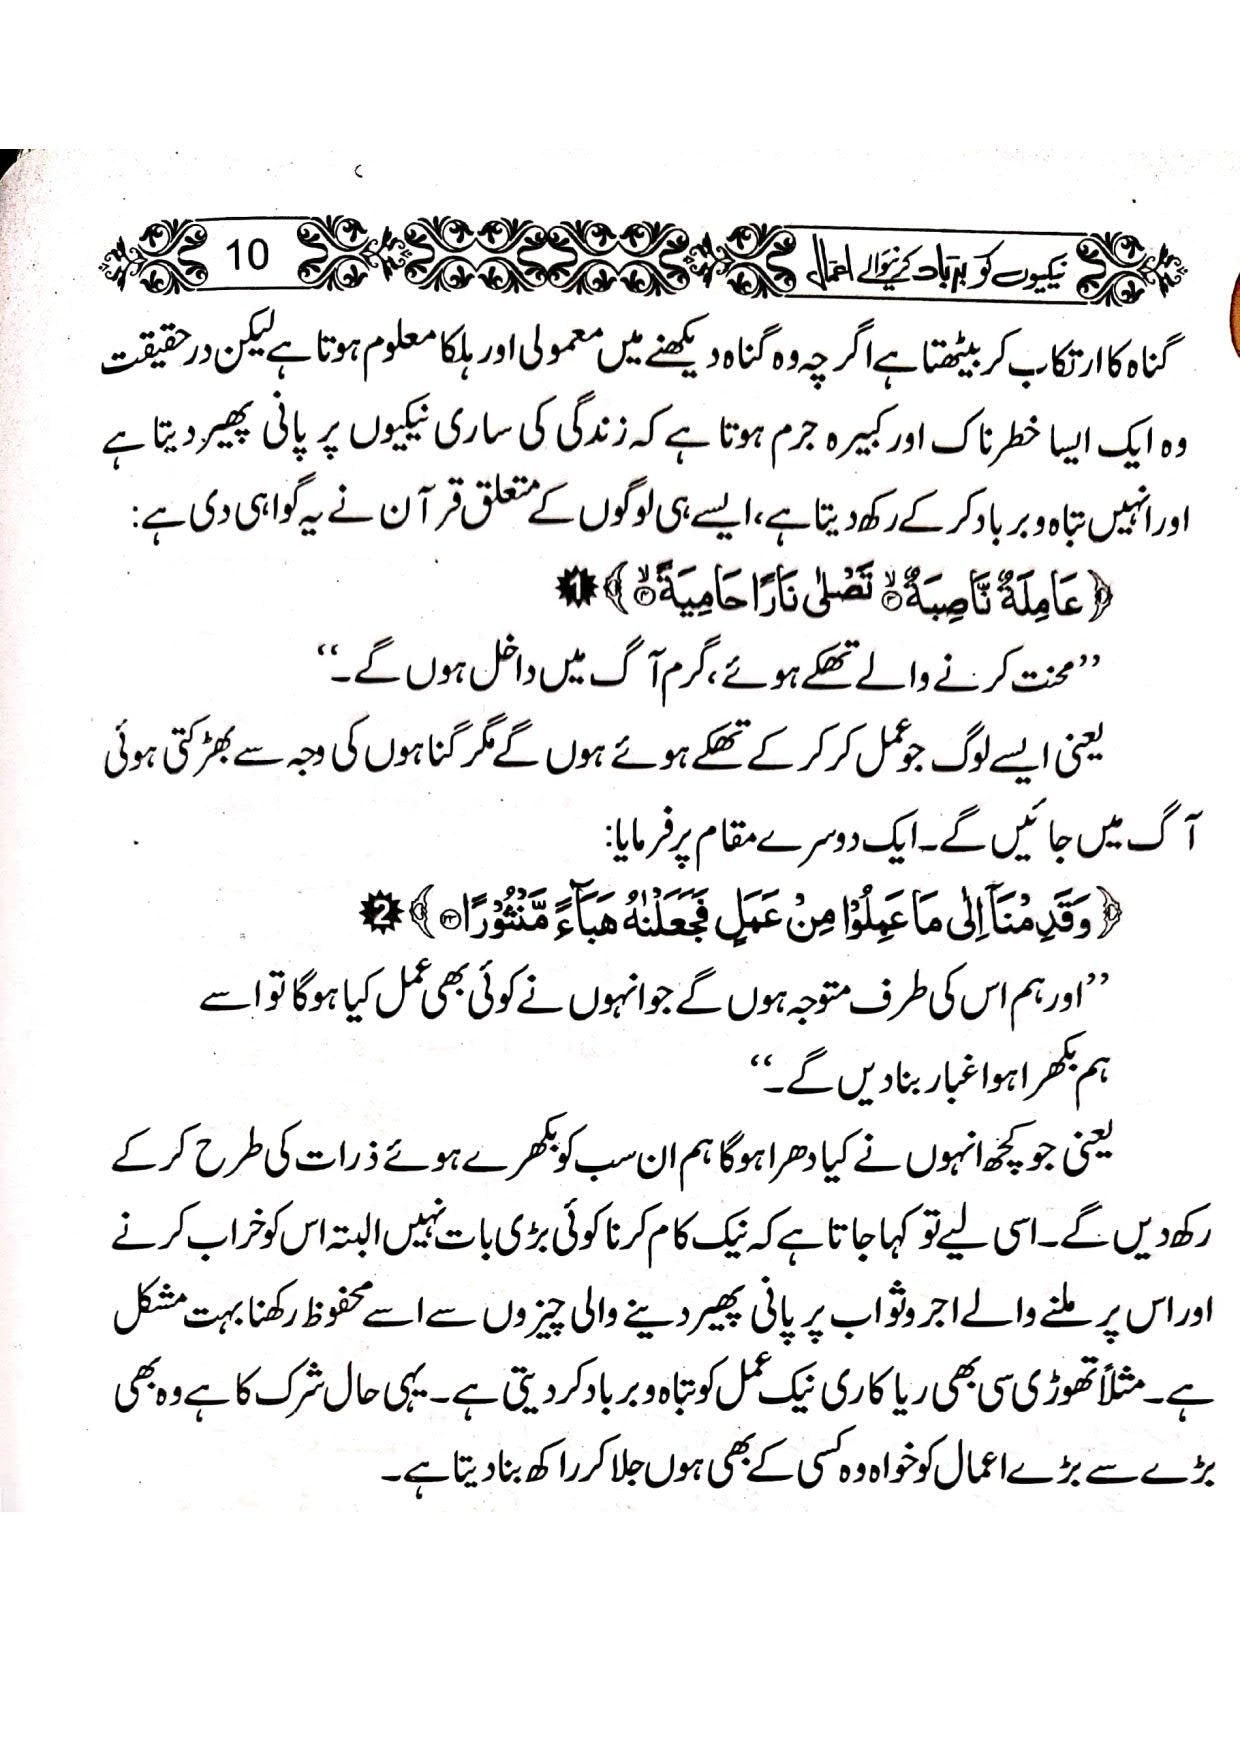 نیکیوں کو برباد کرنیوالے اعمال 10
گناہ کا ارتکاب کر بیٹھتا ہے اگر چہ وہ گناہ دیکھنے میں معمولی اور ہلکا معلوم ہوتا ہے لیکن درحقیقت
وہ ایک ایسا خطرناک اور کبیرہ جرم ہوتا ہے کہ زندگی کی ساری نیکیوں پر پانی پھیر دیتا ہے
اور انہیں تباہ و برباد کر کے رکھ دیتا ہے، ایسے ہی لوگوں کے متعلق قرآن نے یہ گواہی دی ہے:
﴿عَامِلَةٌ نَّاصِبَةٌ ۙ۳ تَصْلٰى نَارًا حَامِيَةً ۙ۴﴾ 1
’’محنت کرنے والے تھکے ہوئے، گرم آگ میں داخل ہوں گے۔‘‘
یعنی ایسے لوگ جو عمل کر کر کے تھکے ہوئے ہوں گے مگر گناہوں کی وجہ سے بھڑکتی ہوئی
آگ میں جائیں گے۔ ایک دوسرے مقام پر فرمایا:
﴿وَقَدِمْنَآ اِلٰى مَا عَمِلُوْا مِنْ عَمَلٍ فَجَعَلْنٰهُ هَبَآءً مَّنْثُوْرًا ۲۳﴾ 2
’’اور ہم اس کی طرف متوجہ ہوں گے جو انہوں نے کوئی بھی عمل کیا ہوگا تو اسے
ہم بکھرا ہوا غبار بنا دیں گے۔‘‘
یعنی جو کچھ انہوں نے کیا دھرا ہوگا ہم ان سب کو بکھرے ہوئے ذرات کی طرح کر کے
رکھ دیں گے۔ اسی لیے تو کہا جاتا ہے کہ نیک کام کرنا کوئی بڑی بات نہیں البتہ اس کو خراب کرنے
اور اس پر ملنے والے اجر و ثواب پر پانی پھیر دینے والی چیزوں سے اسے محفوظ رکھنا بہت مشکل
ہے۔ مثلاً تھوڑی سی بھی ریا کاری نیک عمل کو تباہ و برباد کر دیتی ہے۔ یہی حال شرک کا ہے وہ بھی
بڑے سے بڑے اعمال کو خواہ وہ کسی کے بھی ہوں جلا کر راکھ بنا دیتا ہے۔